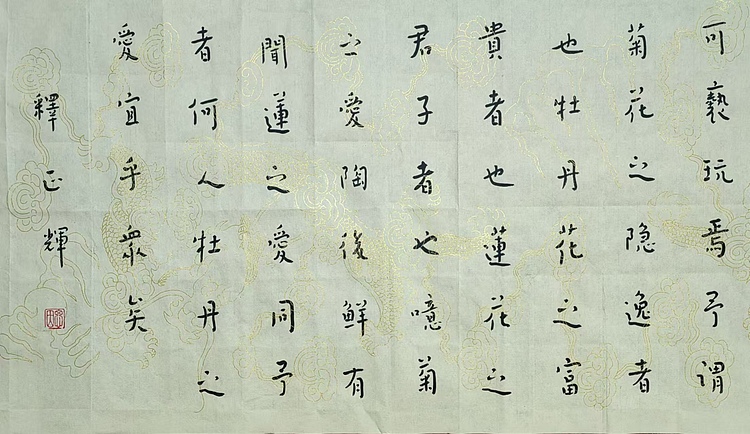 可褻玩焉予谓
菊花之隐逸者
也牡丹花之富
貴者也蓮花之
君子者也噫菊
之愛陶後鮮有
聞蓮之愛同予
者何人牡丹之
愛宜乎眾矣
釋正輝